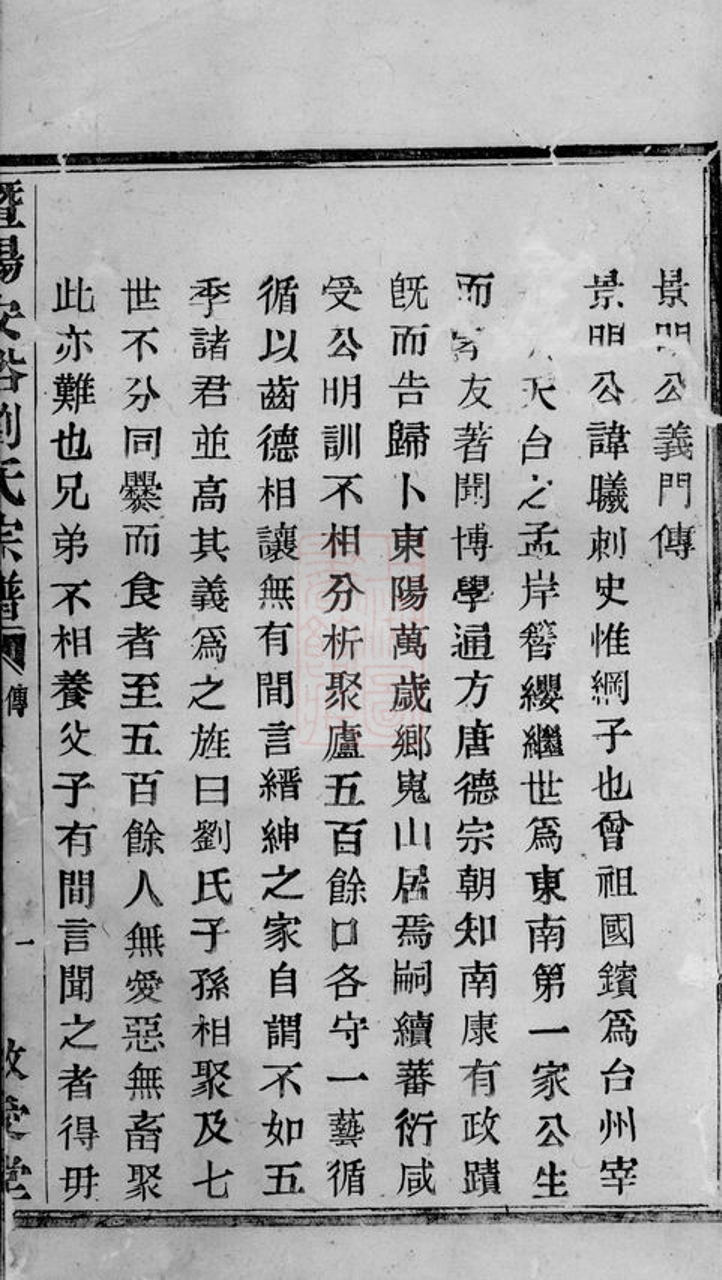 景明公義門傳
景明公諱曦刺史惟綱子也曾祖國鑌爲台州宰
天台之孟岸簪纓繼世爲東南第一家公生
而友著聞博學通方唐德宗朝知南康有政蹟
旣而告歸卜東陽萬歲鄉嵬山居焉嗣續蕃衍咸
受公明訓不相分析聚廬五百餘口各守一藝循
循以齒德相讓無有間言縉紳之家自謂不如五
季諸君並高其義爲之旌曰劉氏子孫相聚及七
世不分同爨而食者至五百餘人無愛惡無畜聚
此亦難也兄弟不相養父子有間言聞之者得毋
暨陽安谷劉氏宗譜
傳
一